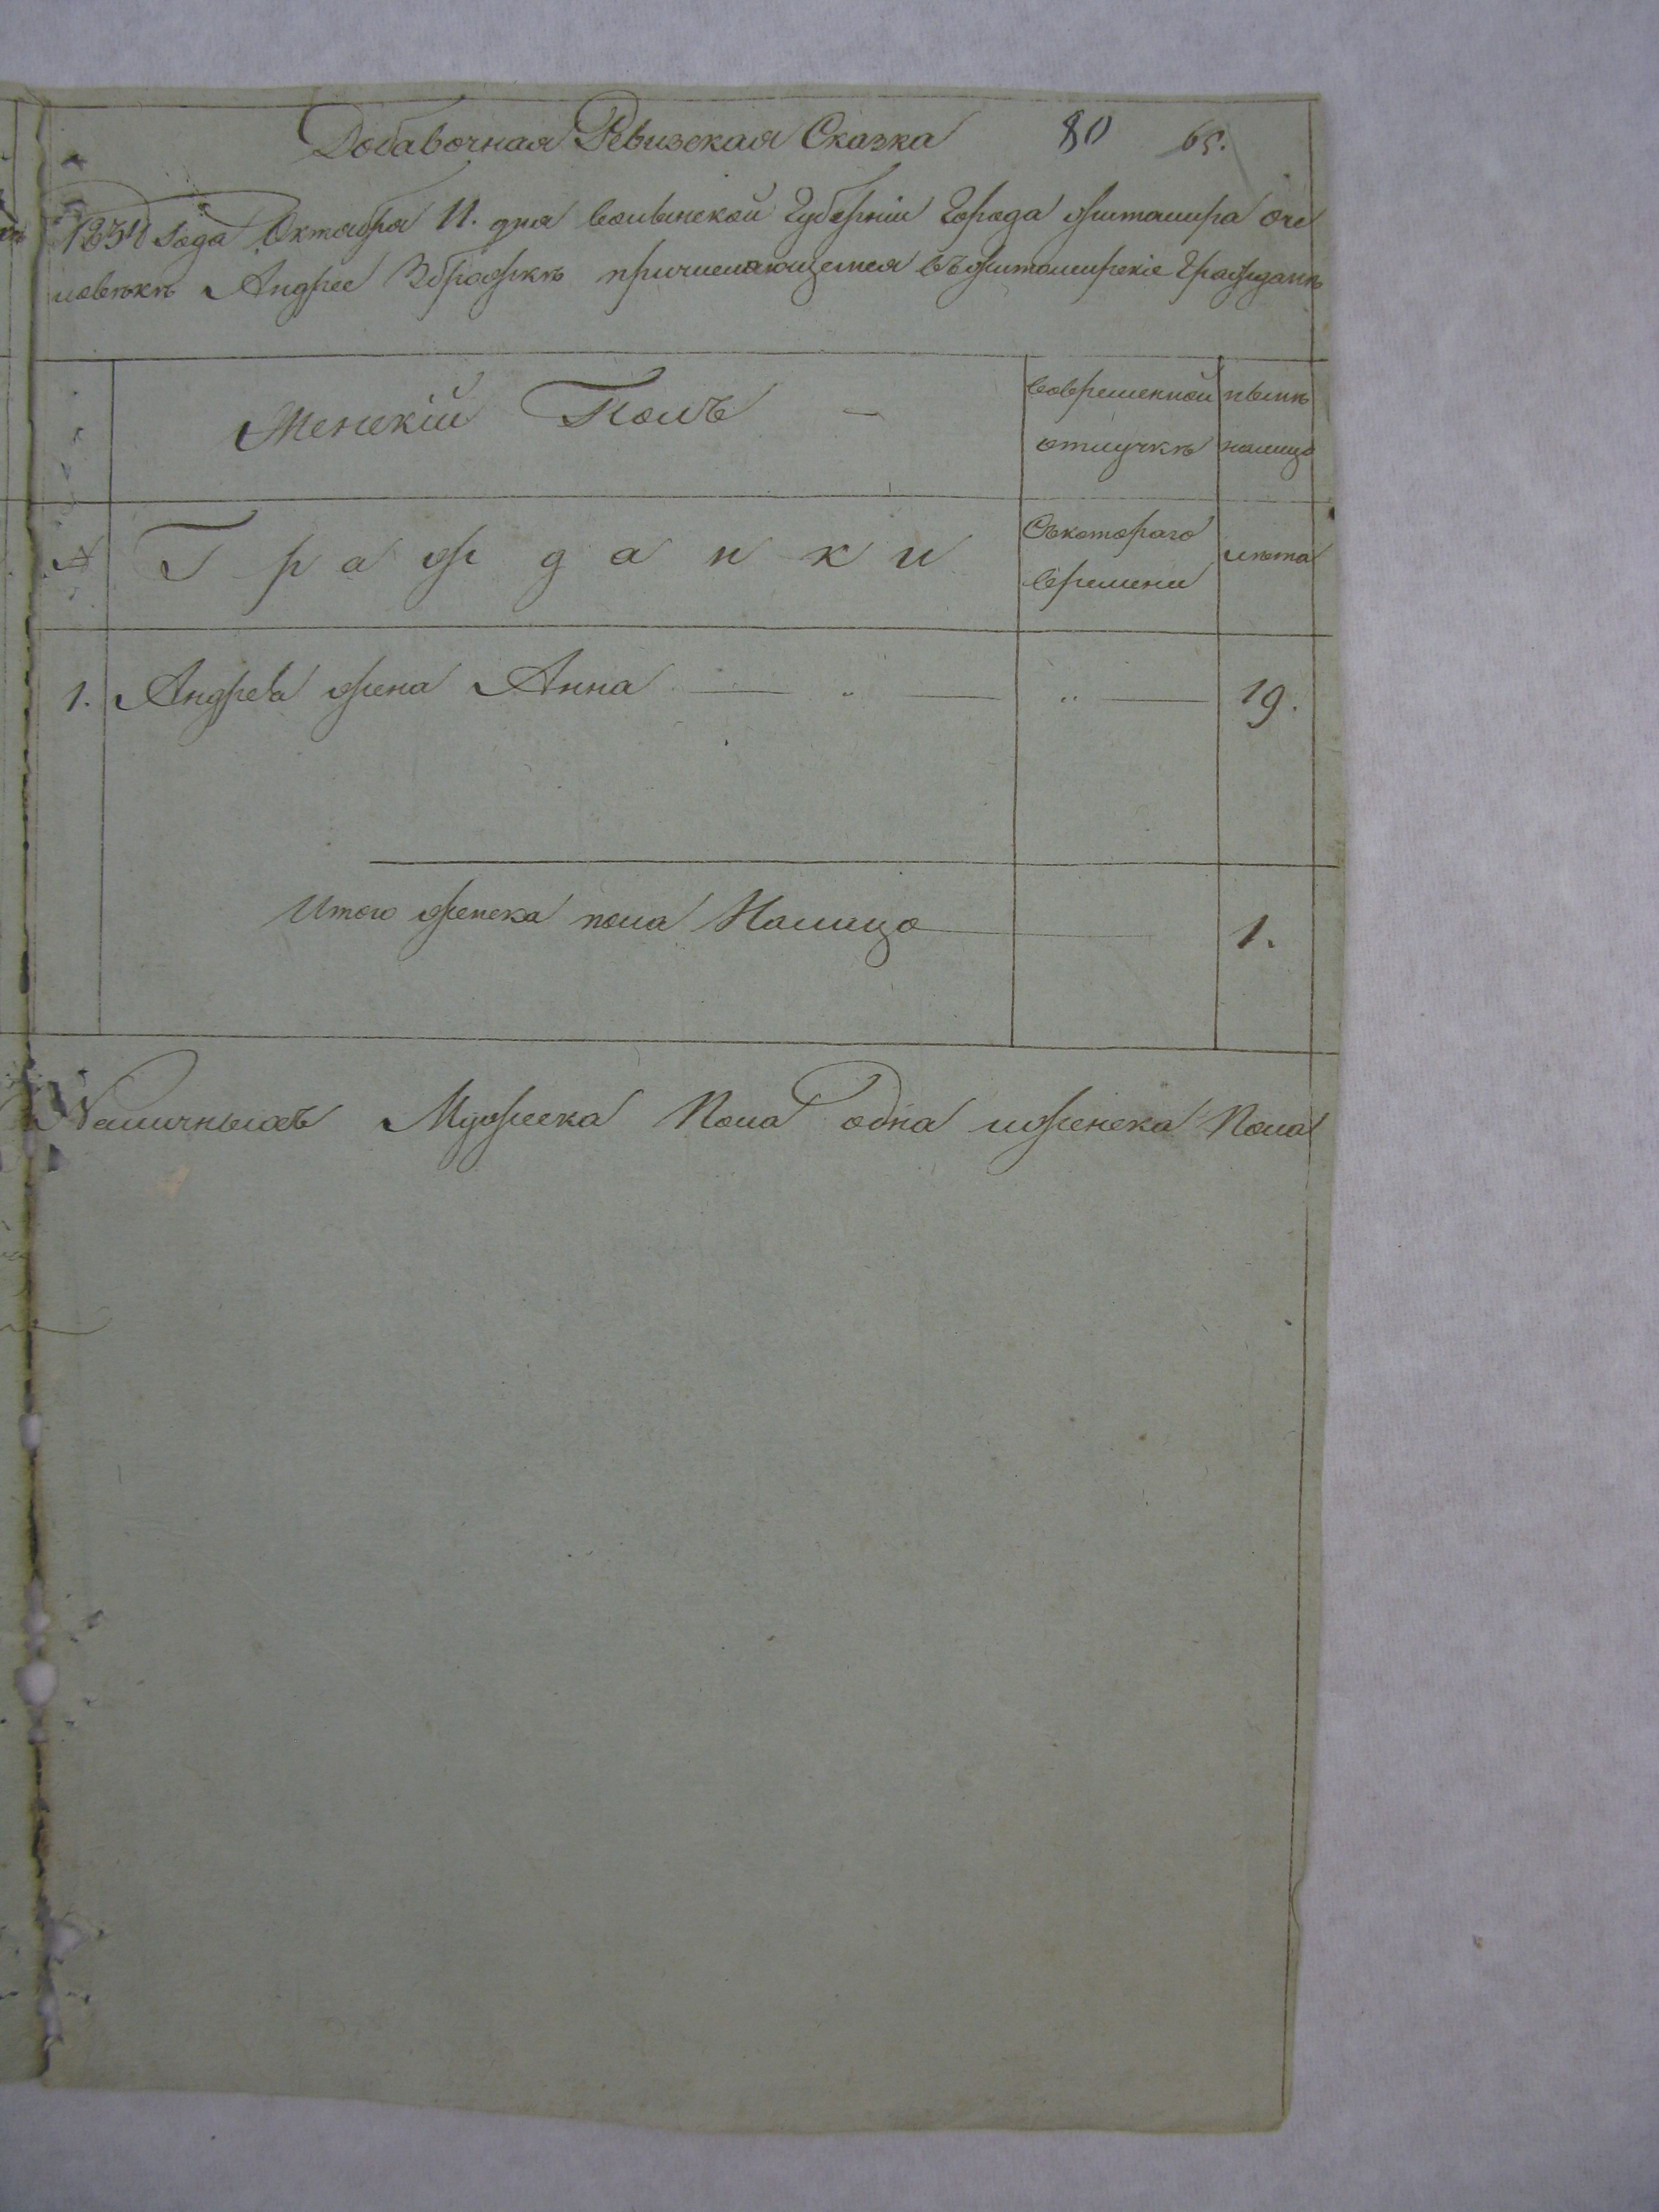 Добавочная Ревизская Сказка 80 65.
1834 года Октября 11. дня волынской Губерніи Города житомира оче
ловѣкѣ Андрее Зброжкѣ причисляющемся въ житомирскіе Граждани
Женскій Полъ
вовременной отлучкѣ
нынѣ налицо
№ Гражданки
Съкотораго времини
лѣта
1. Андрея жена Анна — " — " — 19.
Итого женска пола Налицо 1.
Наличныхъ Мужеска Пола одна и женска Пола